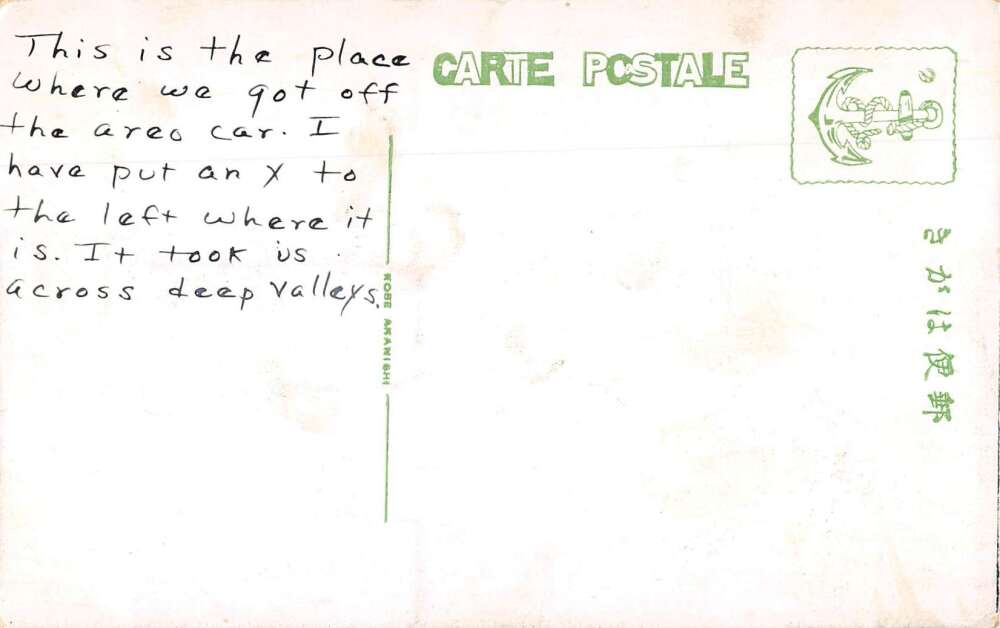 This is the place
where we got off
the areo car. I
have put an X to
the left where it
is. It took us
across deep valleys.
CARTE POSTALE
KOBE AKANISHI
きがは便郵